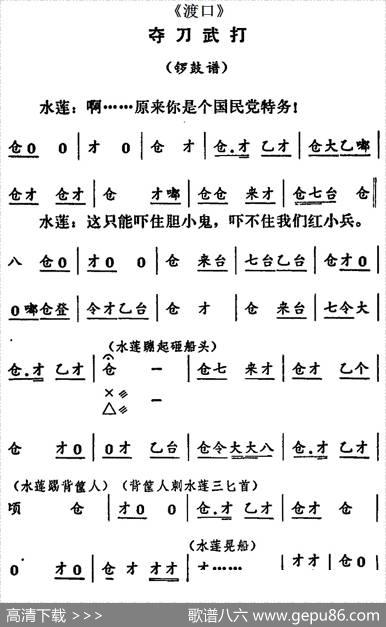 《渡口》
夺刀武打
（锣鼓谱）
水莲：啊……原来你是个国民党特务！
仓0 0 | 才 0 | 仓 才 | 仓.才 乙才 | 仓大乙嘟 |
仓才 仓才 | 仓 才嘟 | 仓仓 来才 | 仓七台 仓 ‖
水莲：这只能吓住胆小鬼，吓不住我们红小兵。
八 仓0 | 才0 0 | 仓 来台 | 七台乙台 | 仓才0 |
0嘟仓登 | 令才乙台 | 仓 才 | 仓 来台 | 七令大 |
（水莲蹦起砸船头）
仓.才 乙才 | 仓 － | 仓七 来才 | 仓才 乙个 |
× －
△
仓 才0 | 0才 乙台 | 仓令大大八 | 仓.才 乙才 |
（水莲踢背筐人）（背筐人刺水莲三匕首）
顷 仓 | 才0 0 | 仓.才 乙才 | 仓才 仓 |
（水莲晃船）
0 才0 | 仓 才 才才 | 才…… | 才才 | 仓0 |
高清下载 >>>
歌谱八六 www.gepu86.com